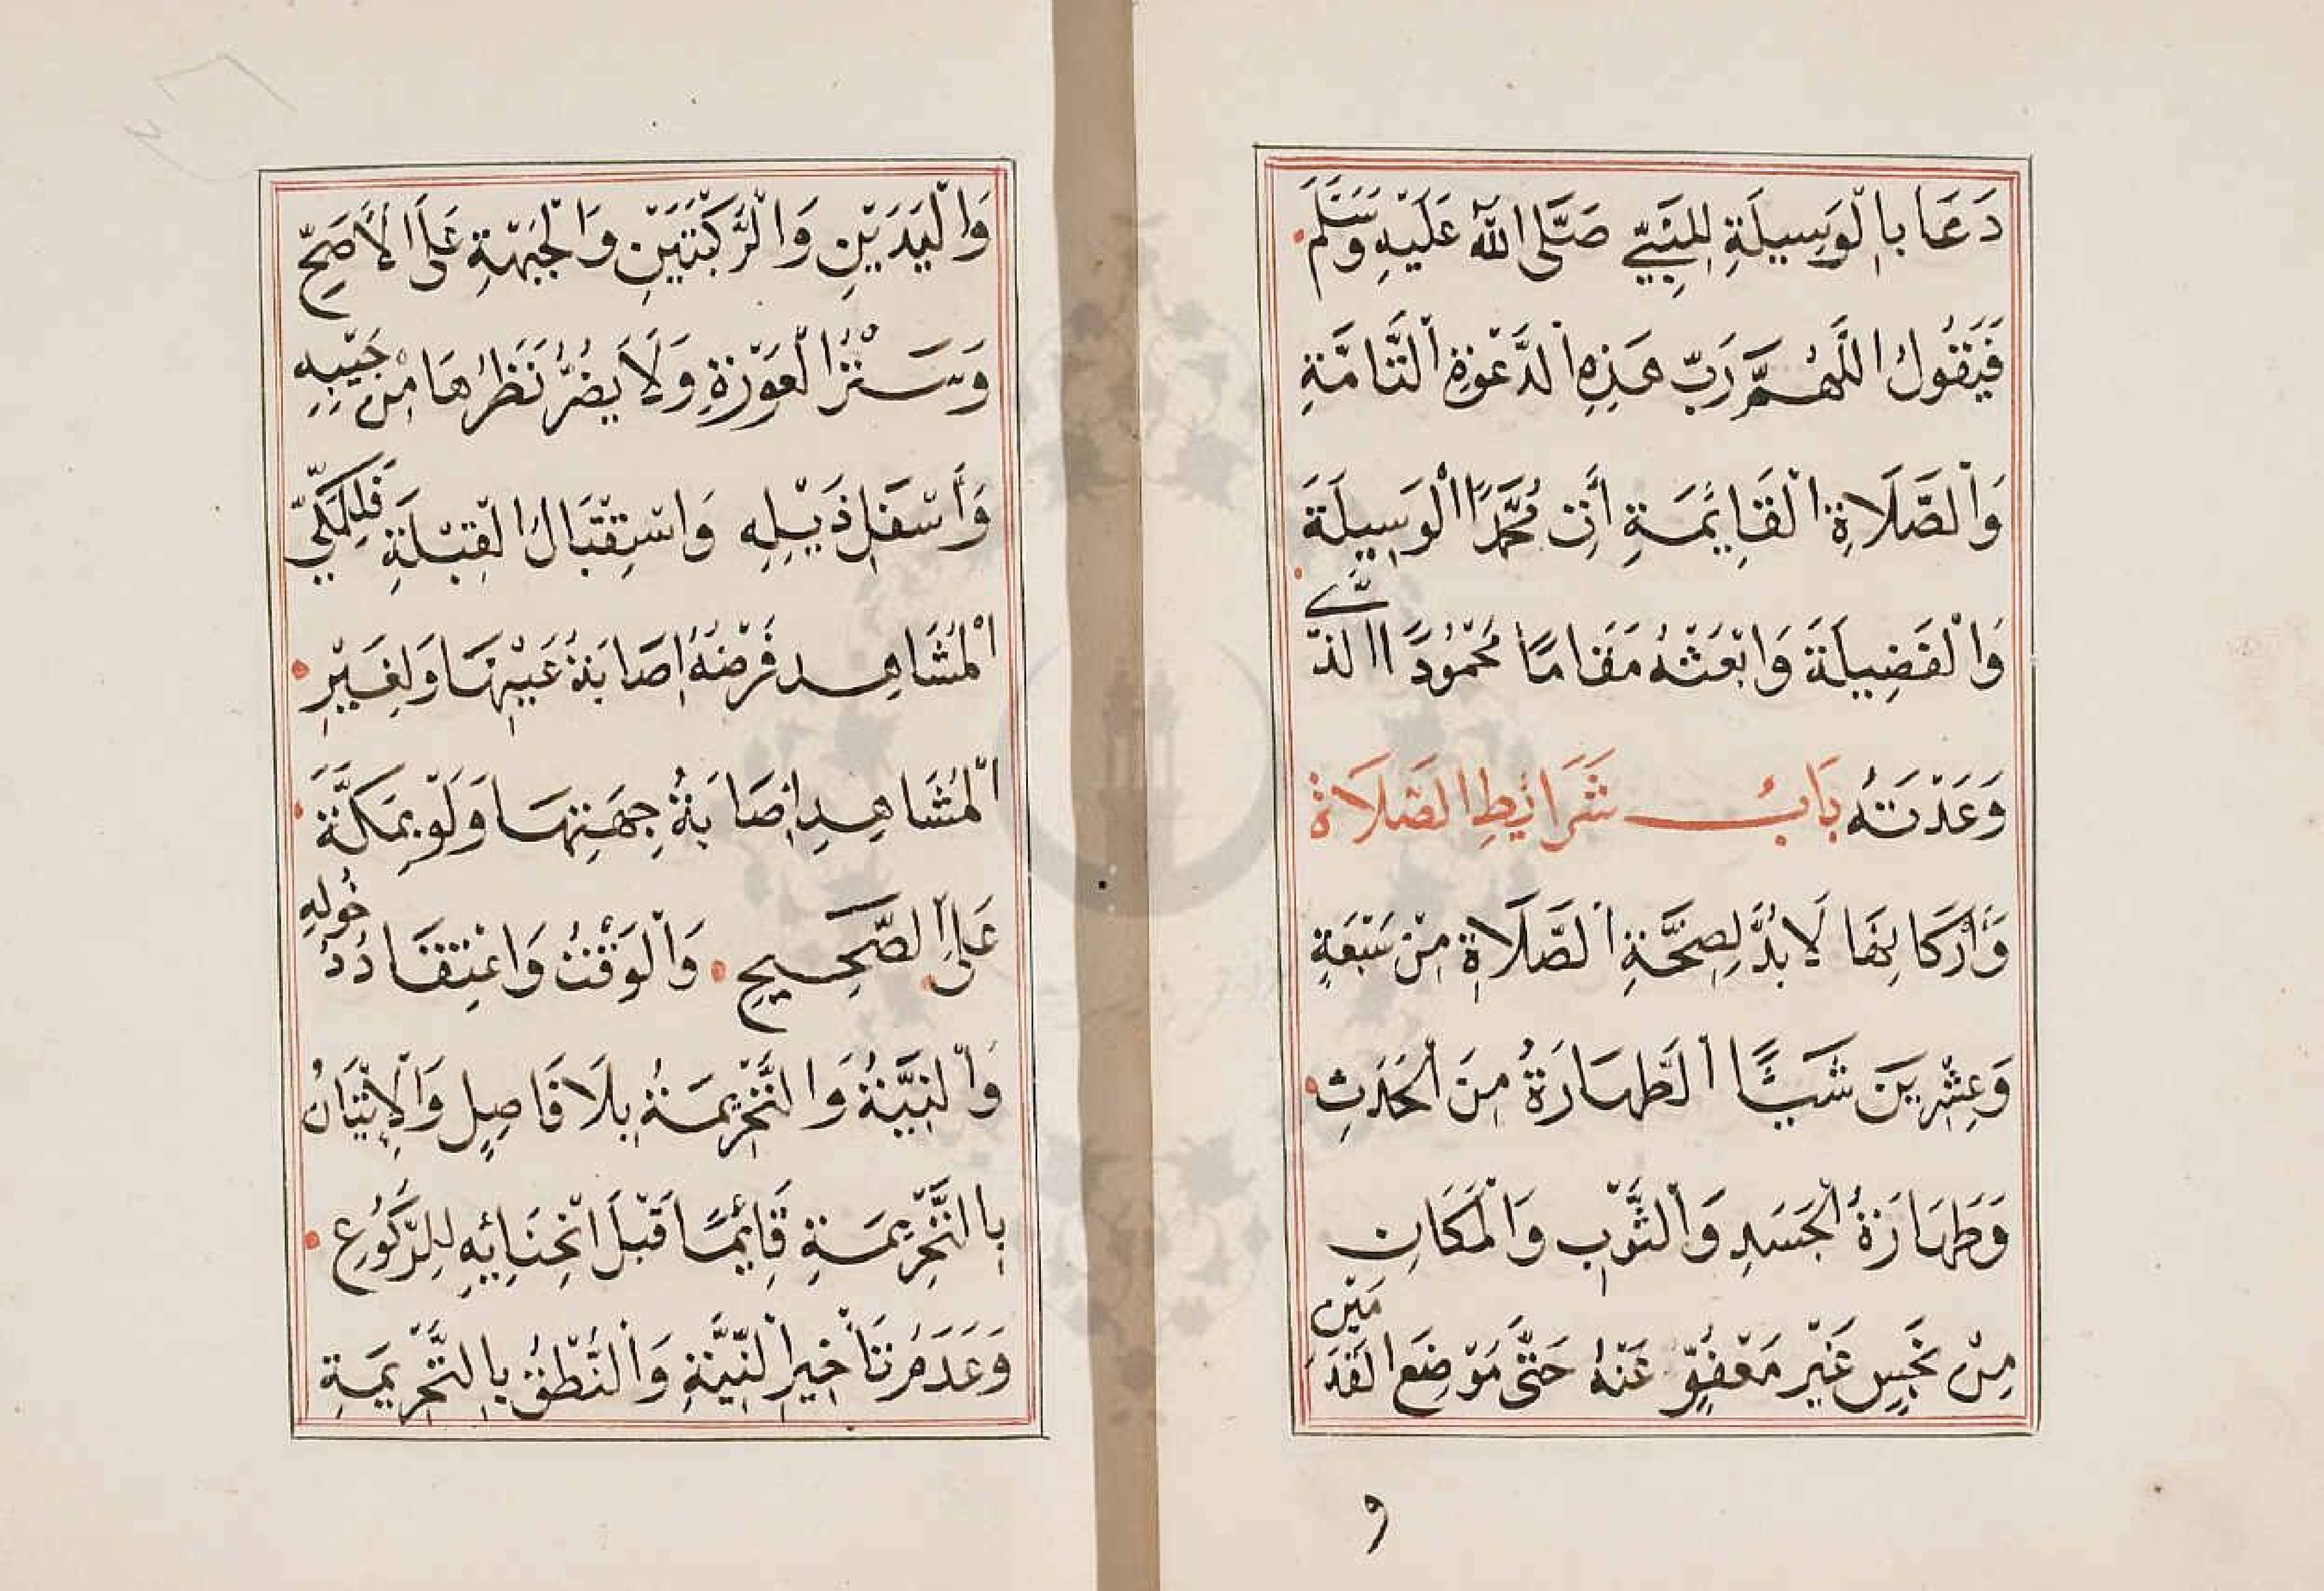 دَعَا بِالْوَسِيلَةِ لِلنَّبِيِّ صَلَّى اللّٰهُ عَلَيْهِ وَسَلَّمَ
فَيَقُولُ اللَّهُمَّ رَبَّ هَذِهِ الدَّعْوَةِ التَّامَّةِ
وَالصَّلَاةِ الْقَائِمَةِ أٰتِ مُحَمَّدًا الْوَسِيلَةَ
وَالْفَضِيلَةَ وَابْعَثْهُ مَقَامًا مَحْمُودًا الَّذِي
وَعَدْتَهُ بَابُ شَرَائِطِ الصَّلَاةِ
وَأَرْكَانِهَا لَابُدَّ لِصِحَّةِ الصَّلَاةِ مِنْ سَبْعَةٍ
وَعِشْرِينَ شَيْئًا الطَّهَارَةُ مِنَ الْحَدَثِ
وَطَهَارَةُ الْجَسَدِ وَالثَّوْبِ وَالْمَكَانِ
مِنْ نَجَسٍ غَيْرِ مَعْفُوٍّ عَنْهُ حَتَّى مَوْضِعَ الْقَدَمَيْنِ
و
وَالْيَدَيْنِ وَالرُّكْبَتَيْنِ وَالْجَبْهَةِ عَلَى الْأَصَحِّ
وَسَتْرُ الْعَوْرَةِ وَلَا يَضُرُّ نَظَرُهَا مِنْ جَيْبِهِ
وَأَسْفَلِ ذَيْلِهِ وَاسْتِقْبَالُ الْقِبْلَةِ فَلِلْمَكِّيِّ
الْمُشَاهِدِ فَرْضُهُ إِصَابَةُ عَيْنِهَا وَلِغَيْرِ
الْمُشَاهِدِ إِصَابَةُ جِهَتِهَا وَلَوْ بِمَكَّةَ
عَلَى الصَّحِيحِ وَالْوَقْتُ وَاعْتِقَادُ دُخُولِهِ
وَالنِّيَّةُ وَالتَّحْرِيمَةُ بِلَا فَاصِلٍ وَالْإِتْيَانُ
بِالتَّحْرِيمَةِ قَائِمًا قَبْلَ انْحِنَائِهِ لِلرُّكُوعِ
وَعَدَمُ تَأْخِيرِ النِّيَّةِ وَالنُّطْقُ بِالتَّحْرِيمَةِ